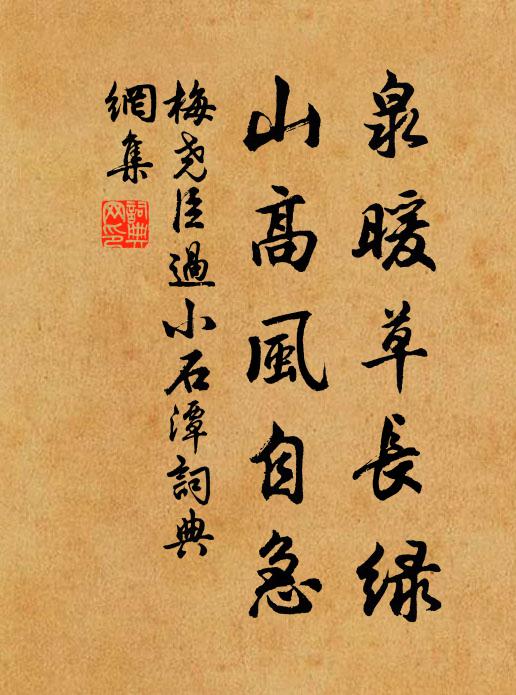 泉暖草長绿
山高風自急
梅堯臣過小石潭詞典
網集
詞典
网印